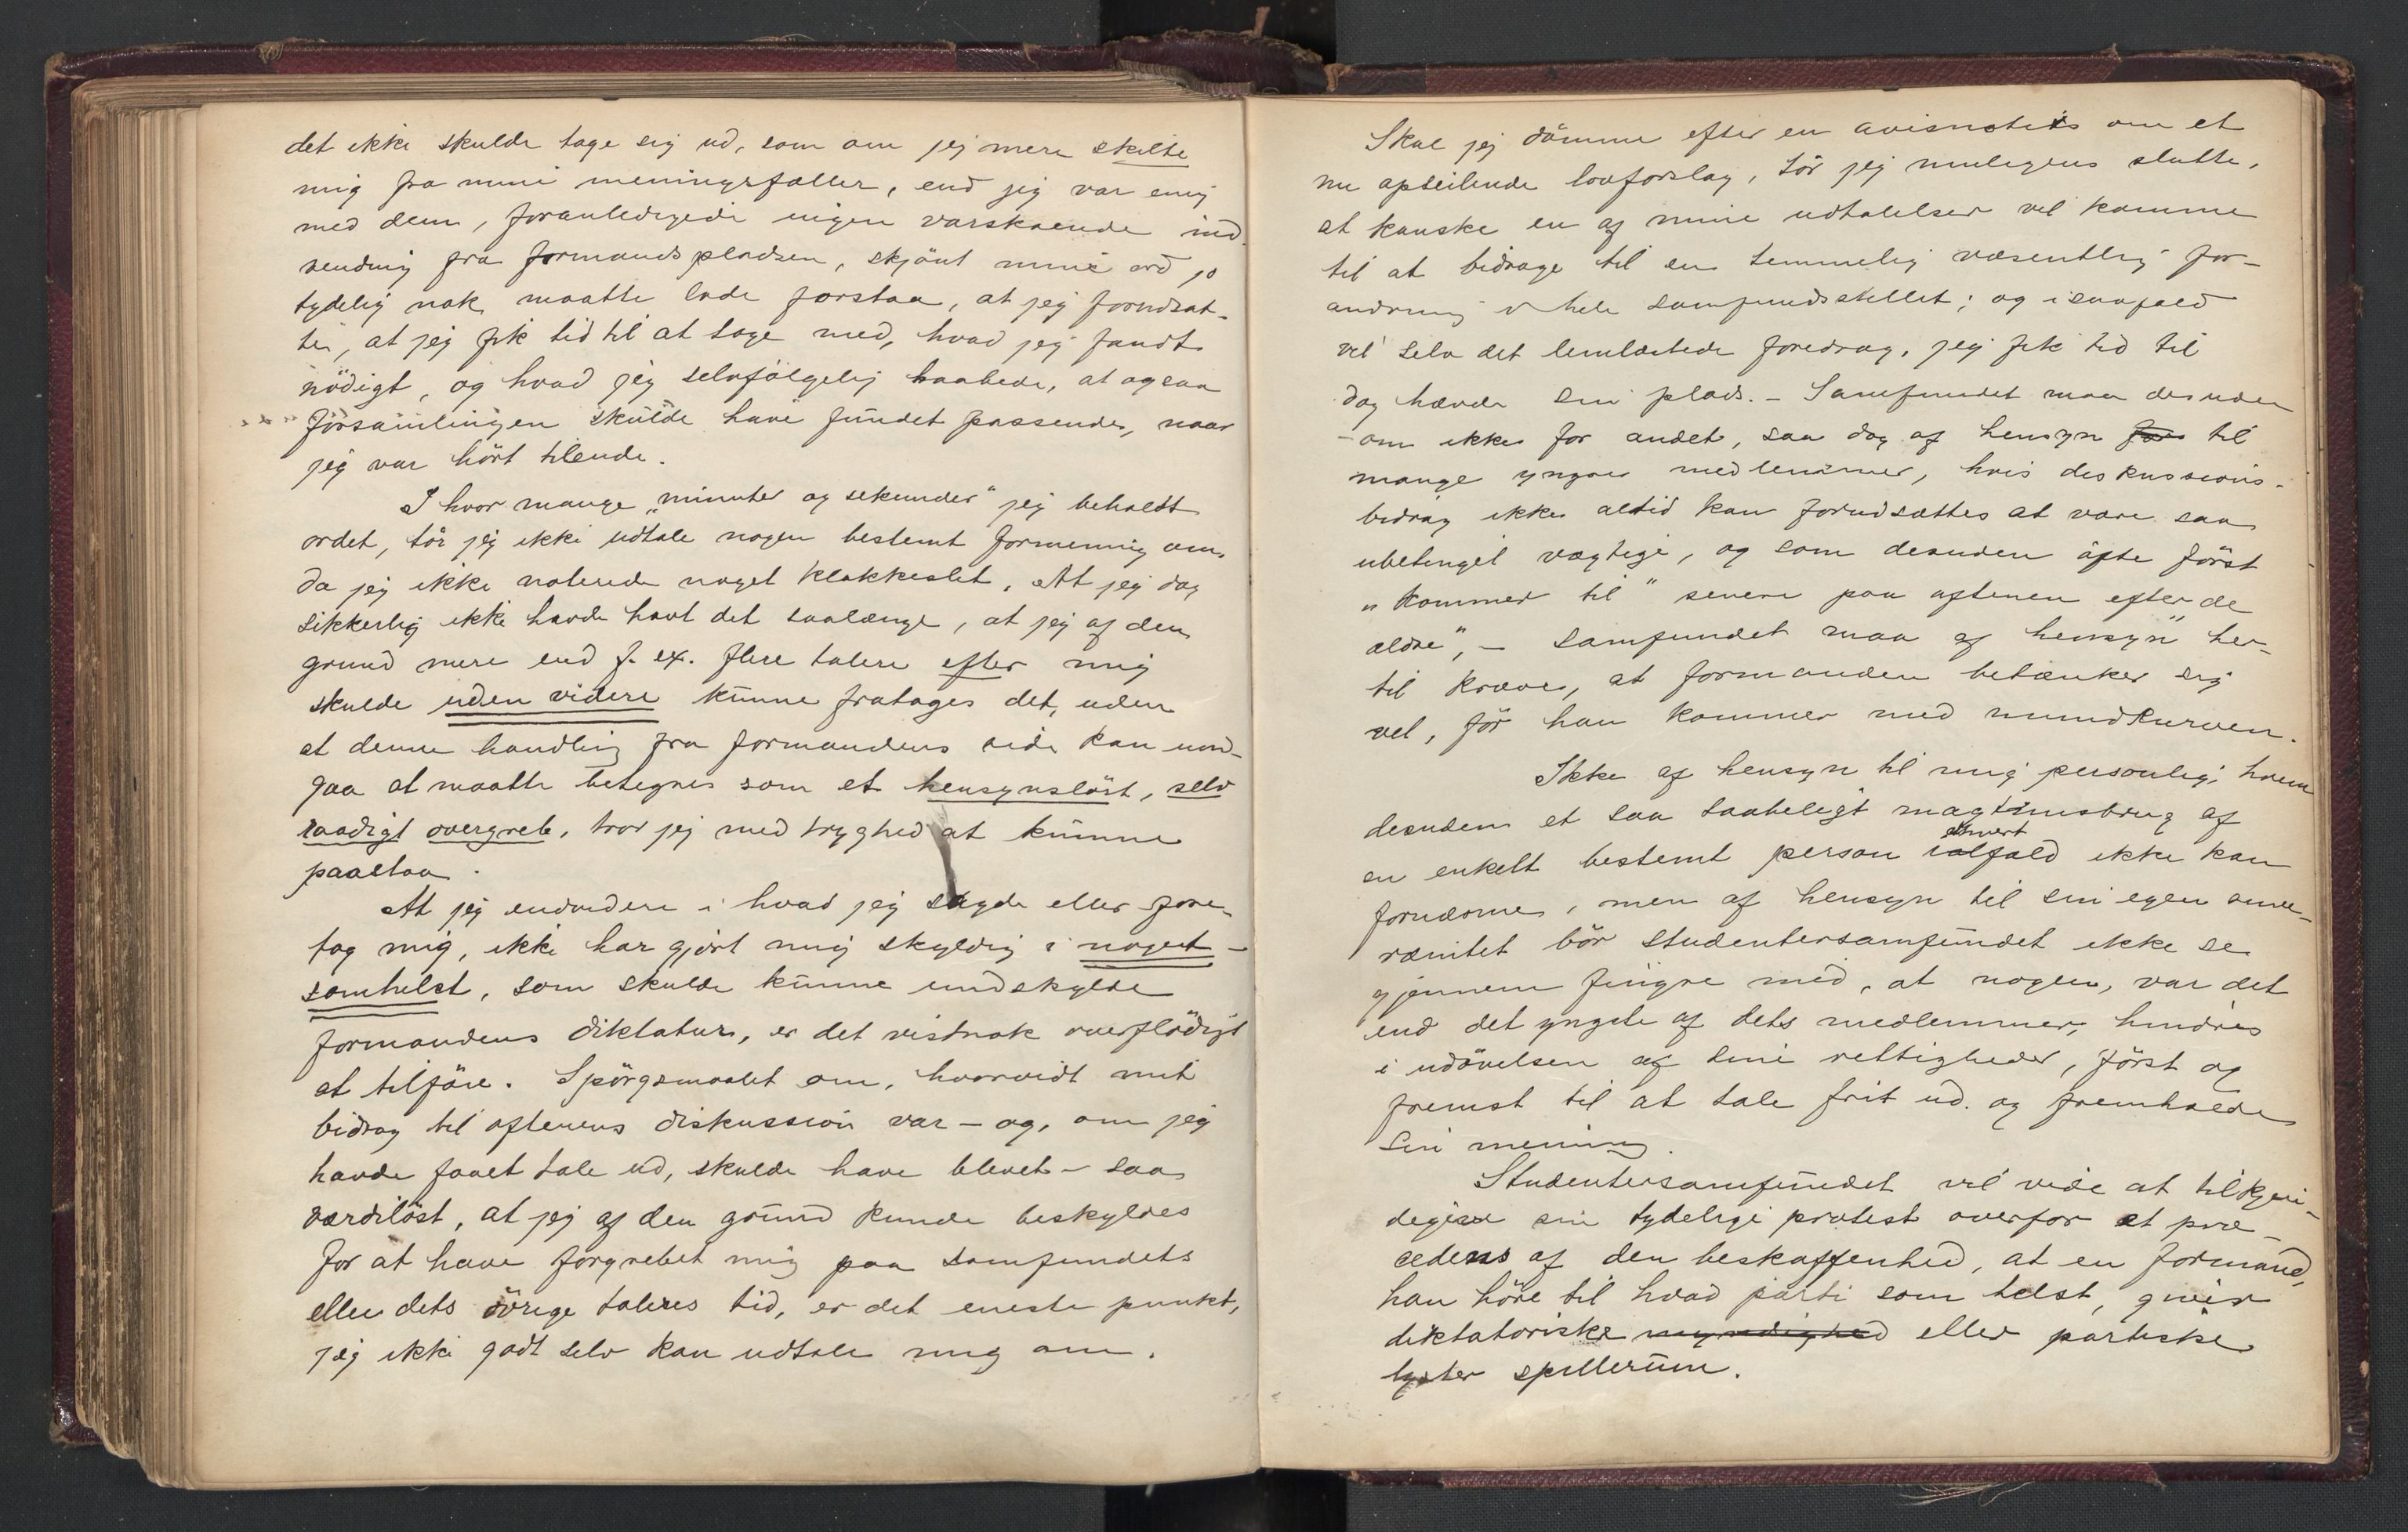 det ikke skulde tage sig ud, som om jeg mere skilte
mig fra mine meningsfæller, end jeg var enig
med dem, foranledigede ingen varskoende ind-
vending fra formandspladsen, skjönt mine ord jo
tydelig nok maatte lade forstaa, at jeg forudsat-
te, at jeg fik tid til at tage med, hvad jeg fandt
nödigt, og hvad jeg selvfölgelig haabede, at ogsaa
forsamlingen skulde have fundet passende, naar
jeg var hört tilende.
I hvor mange „minuter og sekunder" jeg beholdt
ordet, tör jeg ikke udtale nogen bestemt formening om,
da jeg ikke noterede noget klokkeslet. At jeg dog
sikkerlig ikke havde havt det saalænge, at jeg af den
grund mere end f. ex. flere talere efter mig
skulde uden videre kunne fratages det, uden
at denne handling fra formandens side kan und-
gaa at maatte betegnes som et hensynslöst, selv
raadigt overgreb, tror jeg med tryghed at kunne
paastaa.
At jeg endvidere i hvad jeg sagde eller fore-
tog mig, ikke har gjort mig skyldig i noget-
somhelst, som skulde kunne undskylde
formandens diktatur, er det vistnok overflödigt
at tilföie. Spörgsmaalet om, hvorvidt mit
bidrag til aftenens diskussion var – og, om jeg
havde faaet tale ud, skulde have blevet – saa
værdilöst, at jeg af den grund kunde beskyldes
for at have forgrebet mig paa samfundets
eller dets övrige taleres tid, er det eneste punkt,
jeg ikke godt selv kan udtale mig om.
Skal jeg dömme efter en avisnotis om et
nu opseilende lovforslag, tör jeg muligens slutte,
at kanske en af mine udtalelser vil komme
til at bidrage til en temmelig væsentlig for-
andring i hele samfundsstellet; og isaafald
vil selv det lemlæstede foredrag, jeg fik tid til
dog hævde sin plads. – Samfundet maa desuden
– om ikke for andet, saa dog af hensyn for til
mange yngre medlemmer, hvis diskussions-
bidrag ikke altid kan forudsættes at være saa
ubetinget vægtige, og som desuden ofte först
„kommer til" senere paa aftenen efter de
ældre", – samfundet maa af hensyn her-
til kræve, at formanden betænker sig
vel, för han kommer med mundkurven.
Ikke af hensyn til mig personlig, hvem
desuden et saa taabeligt magtmisbrug af
en enkelt bestemt person ialfald ikke kan
fornærme, men af hensyn til sin egen suve-
rænitet bör studentersamfundet ikke se
gjennem fingre med, at nogen, var det
end det yngste af dets medlemmer, hindres
i udövelsen af sine rettigheder, först og
fremst til at tale frit ud og fremholde
sin mening.
Studentersamfundet vil vide at tilkjen-
degive sin tydelige protest overfor et præ-
cedens af den beskaffenhed, at en formand,
han höre til hvad parti som helst, giver
diktatoriske myndighed eller partiske
lyster spillerum.